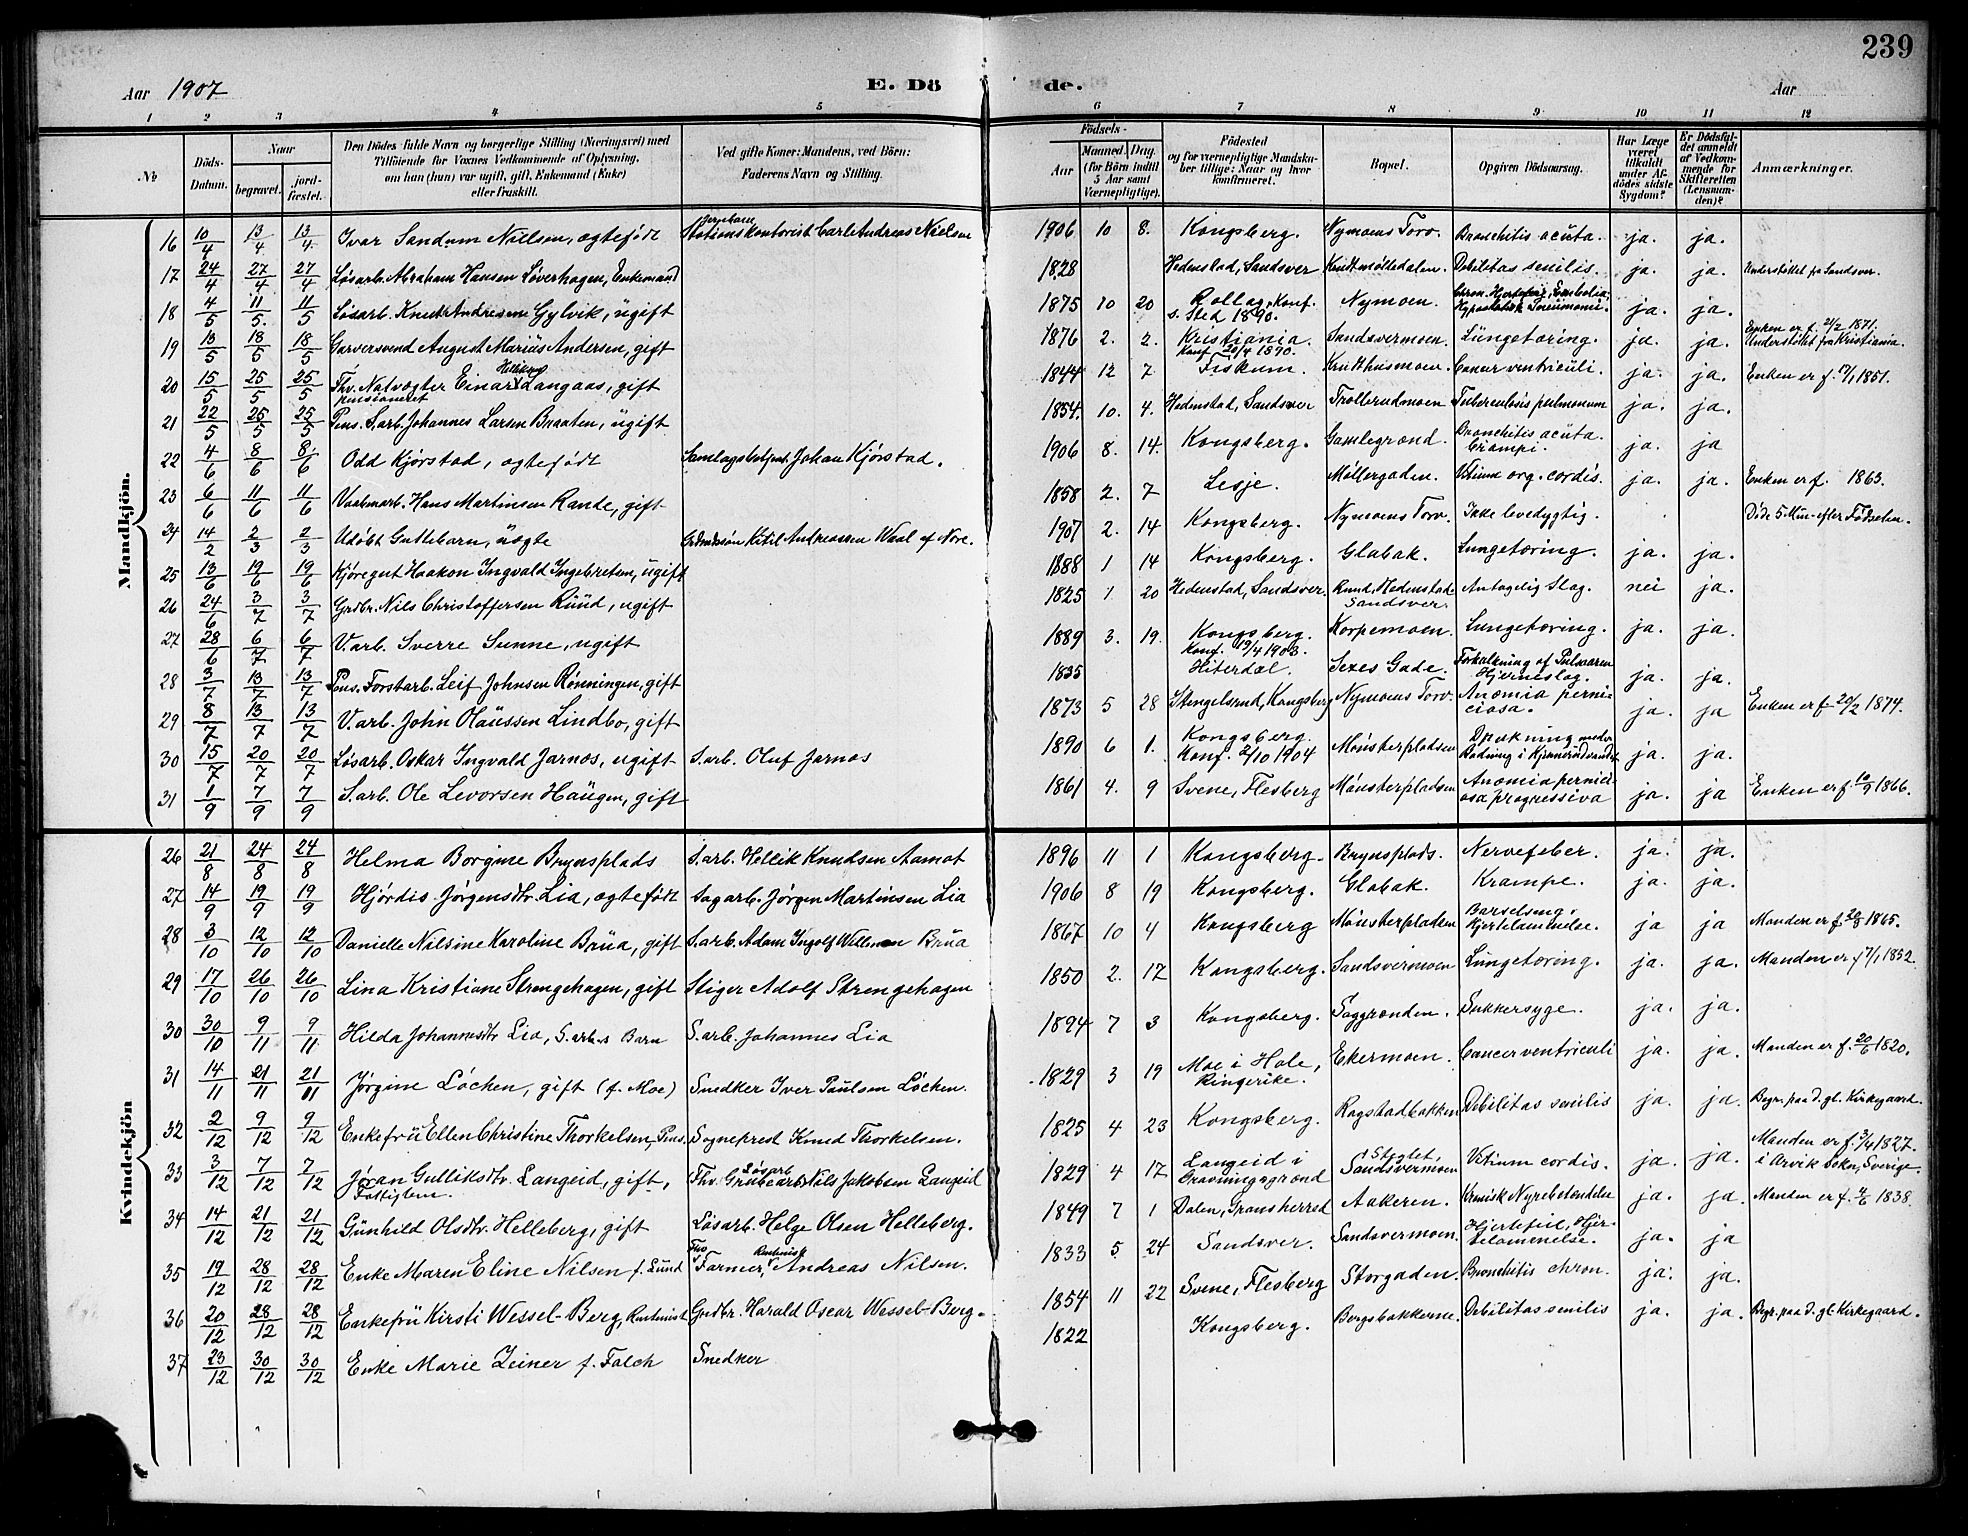 239
Aar 1907 E. Dö de. Aar
1 2 3 4 5 6 7 8 9 10 11 12
№
Döds-Datum.
Naar
begravet.
jordfæstet.
Den Dödes fulde Navn og borgerlige Stilling (Næringsvei) med
Tilföiende for Voxnes Vedkommende af Oplysning,
om han (hun) var ugift, gift, Enkemand (Enke)
eller fraskilt.
Ved gifte Koner: Mandens, ved Börn:
Faderens Navn og Stilling.
Födsels-
Aar
Maaned. Dag.
(for Börn indtil
5 Aar samt
Værnepligtige).
Födested
og for værnepligtige Mandskaber
tillige: Naar og hvor
konfirmeret.
Bopæl.
Opgiven Dödsaarsag.
Har Læge
været
tilkaldt
under Afdödes
sidste
Sygdom?
Er Dödsfaldet
anmeldt
af Vedkommende
for
Skifteretten
(Lensmanden)?
Anmærkninger.
Mandkjön.
16 10/4 13/4 13/4 Ivar Sandum Nielsen, ægtefödt Jernban Stationskontorist Carl Andreas Nielsen 1906 10 8. Kongsberg. Nymoens Torv. Bronchitis acuta. ja. ja.
17 24/4 27/4 27/4 Løsarb. Abraham Hansen Løverhagen, Enkemand 1828 Hedenstad, Sandsver Knutmølledalen. Debilitas senilis. ja. ja. Understöttet fra Sandsver.
18 4/5 11/5. 11/5 Løsarb. Knut Andresen Gylvik, ugift 1875 10 20 Rollag, Konf. s. Sted 1890. Nymoen. Chron. Hjertefeil, Embolia, Hypostatisk Pneumoni. ja. ja.
19 13/5 18/5 18/5 Garversvend August Marius Andersen, gift 1876 2. 2. Kristiania. Konf. 20/4 1890. Sandsvermoen. Lungetæring. ja. ja. Enken er f. 21/2 1871. Understöttet fra Kristiania.
20 15/5 25/5 25/5 Fhv. Natvogter Einar Langaas, gift 1844 12 7 Fiskum. Krutthusmoen. Cancer ventriculi. ja. ja. Enken er f. 1851.
21 22/5 25/5 25/5 pensioneret Pens. S.arb. Johannes Larsen Braaten, ugift 1854. 10. 4. Hedenstad, Sandsver Trollerudmoen Tuberculosis pulmonum ja. ja.
22 4/6 8/6 8/6 Odd Kjørstad, ægtefödt Samlagsbetjent Johan Kjørstad. 1906 8. 14. Kongsberg. Gamlegrend. Bronchitis acuta. Crampi. ja. ja
23 6/6 11/6 11/6 Vaabenarb. Hans Martinsen Rande, gift 1858 2. 7 Lesje. Møllergaden. Vitium org. cordis. ja. ja. Enken er f. 1863.
24 14/2 2/3 2/3 Udöbt Guttebarn, uægte Gaardmandssøn Kitil Andreassen Waal af Nore. 1907 2. 14 Kongsberg. Nymoens Torv. Ikke levedygtig. Døde 5 Min. efter Fødselen.
25 13/6 19/6 19/6 Kjøregut Haakon Ingvald Ingebretsen, ugift 1888 1 14 Kongsberg. Glabak. Lungetæring. ja. ja.
26 24/6 3/7 3/7 Grdbr. Nils Christoffersen Ruud, ugift 1825 1 20 Hedenstad, Sandsver. Ruud, Hedenstad Sandsver. Antagelig Slag. nei ja.
27 28/6 6/7 6/7 V.arb. Sverre Sunne, ugift 1889 3. 19. Kongsberg. Konf. 19/4 1903. Korpemoen. Lungetæring. ja. ja.
28 3/7 13/7 13/7 Pens. Forstarb. Leif Johnsen Rønningen, gift 1835 Hiterdal. Sexes Gade. Forkalkning af Pulsaaren Hjerneslag. ja. ja.
29 8/7 13/7 13/7 V.arb. John Olaussen Lindbo, gift 1873 5 28 Stengelsrud, Kongsberg Nymoens Torv. Anæmia perniciosa. ja. ja Enken er f. 20/2 1874.
30 15/7 20/7 20/7 Løsarb. Oskar Ingvald Jarnæs, ugift S.arb. Oluf Jarnæs 1890 6 1. Kongsberg. Konf. 2/10 1904 Mønsterpladsen Drukning under Badning i Kjennerudvandet ja. ja.
31 1/9 7/9 7/9 S.arb. Ole Levorsen Haugen, gift 1861 4. 9 Svene, Flesberg Mønsterpladsen Anæmia perniciosa progressiva ja. ja Enken er f. 10/9 1866.
Kvindekjön
26 21/8 24/8 24/8 Helma Borgine Brynsplads S.arb. Hellik Knudsen Aamot 1896 11 1 Kongsberg. Brynsplads. Nervefeber. ja. ja.
27 14/9 19/9 19/9 Hjørdis Jørgensdtr. Lia, ægtefödt Sagarb. Jørgen Martinsen Lia 1906 8 19 Kongsberg. Glabak. Krampe. ja. ja.
28 3/10 12/10 12/10 Danielle Nilsine Karoline Brua, gift S.arb. Adam Ingolf Willman Brua 1867 10 4 Kongsberg Mønsterpladen Barselseng. Hjertelammelse. ja ja Manden er f. 1865.
29 17/10 26/10 26/10 Lina Kristiane Strengehagen, gift Stiger Adolf Strengehagen 1850 2. 17 Kongsberg. Sandsvermoen Lungetæring. ja. ja. Manden er f. 1852.
30 30/10 9/11 9/11 Hilda Johannesdtr Lia, S.arb.s Barn S.arb. Johannes Lia 1894 7 3 Kongsberg. Saggrenden. Sukkersyge. ja. ja.
31 14/11 21/11 21/11 Jørgine Løchen, gift (f. Moe) Snedker Iver Paulsen Løchen. 1829 3 19 Moe i Hole, Ringerike. Ekermoen. Cancer ventriculi ja. ja. Manden er f. 20/6 1820.
32 2/12 9/12 9/12 Enkefru Ellen Christine Thorkelsen, Pens. Sogneprest Kned Thorkelsen. 1825 4 23 Kongsberg. Ragstadbakken Debilitas senilis ja. ja. Begr. paa d. gl. Kirkegaard.
33 3/12 7/12 7/12 Jøran Gulliksdtr. Langeid, gift, Fattiglem. Fhv. Løsarb Grubearb. Nils Jakobsen Langeid 1829 4 17 Langeid i Gravningsgrend Sandsvermoen Vitium cordis. ja. ja. Manden er f. 3/4 1827. i Arvik Sokn, Sverige.
34 14/12 21/12 21/12 Gunhild Olsdtr. Helleberg, gift Løsarb. Helge Olsen Helleberg. 1849 7 1 Dalen, Gransherred Aakeren. Kronisk Nyrebetændelse ja. ja. Manden er f. 4/6 1838.
35 19/12 28/12 28/12 Enke Maren Eline Nilsen f. Lund Fhv. Farmer, Andreas Nilsen. 1833 5 24 Sandsver. Sandsvermoen. Hjertefeil, Hjertelammelse. ja. ja
36 20/12 28/12 28/12 Enkefru Kirsti Wessel-Berg, Rentenist Grdbr. Harald Oscar Wessel-Berg. 1854 11 22 Svene, Flesberg Storgaden. Bronchitis chron. ja. ja.
37 23/12 30/12 30/12 Enke Marie Zeiner f. Falch Snedker 1822 Kongsberg. Bergsbakkerne. Debilitas senilis ja. ja. Begr. paa d. gl. Kirkegaard.